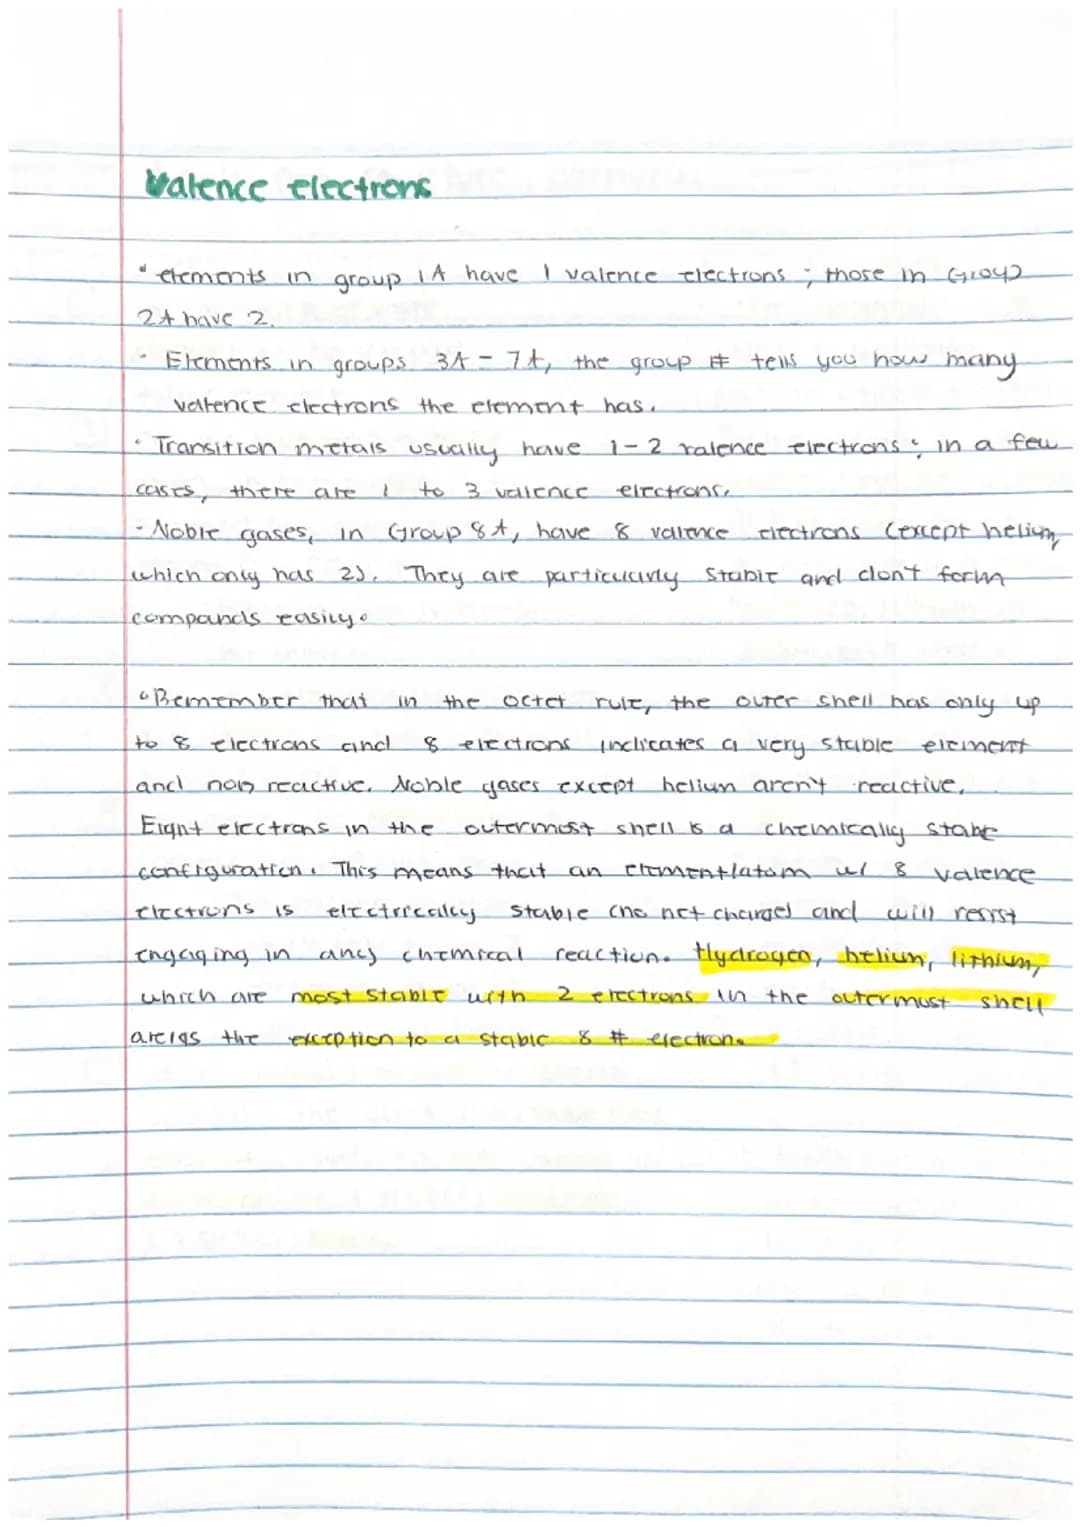 Valence electrons
• elements in group 1A have 1 valence electrons ; those in Group
2A have 2.
• Elements in groups 3A - 7A, the group # tells you how many
valence electrons the element has.
• Transition metals usually have 1-2 valence electrons ; in a few
cases, there are 1 to 3 valence electrons.
- Noble gases, in Group 8A, have 8 valence electrons (except helium,
which only has 2). They are particularly stable and don't form
compands easily.
• Remember that in the octet rule, the outer shell has only up
to 8 electrons and 8 electrons indicates a very stable element
and non reactive. Noble gases except helium aren't reactive.
Eight electrons in the outermost shell is a chemically stable
configuration. This means that an element/atom w/ 8 valence
electrons is electrically stable (no net charge) and will resist
engaging in any chemical reaction. Hydrogen, helium, lithium,
which are most stable with 2 electrons in the outermost shell
the exception to a stable 8 # electron.